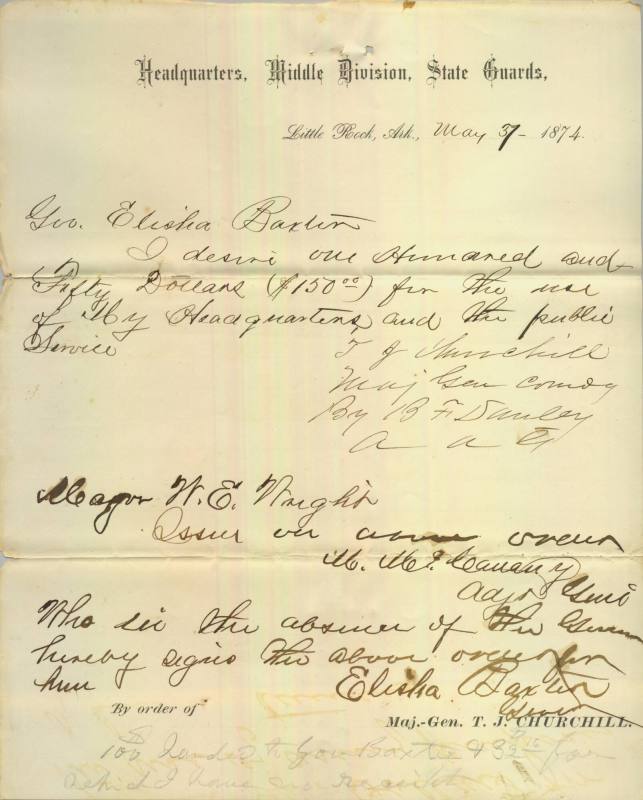 Headquarters, Middle Division, State Guards,
Little Rock, Ark., May 1874.
Gov. Elisha Baxter
I desire one Hundred and
Fifty Dollars ($150.00) for the use
of My Headquarters, and the public
Service
T J Churchill
Maj Gen Comdg
By B F Danley
A A G
Major W. E. Wright
Issue on above order
Adjt Genl
Who in the absence of the Governor
hereby signs the above order for
him
Elisha Baxter
By order of
Maj.-Gen. T. J. CHURCHILL.
100 handed to Gov Baxter & for
which I have no receipt